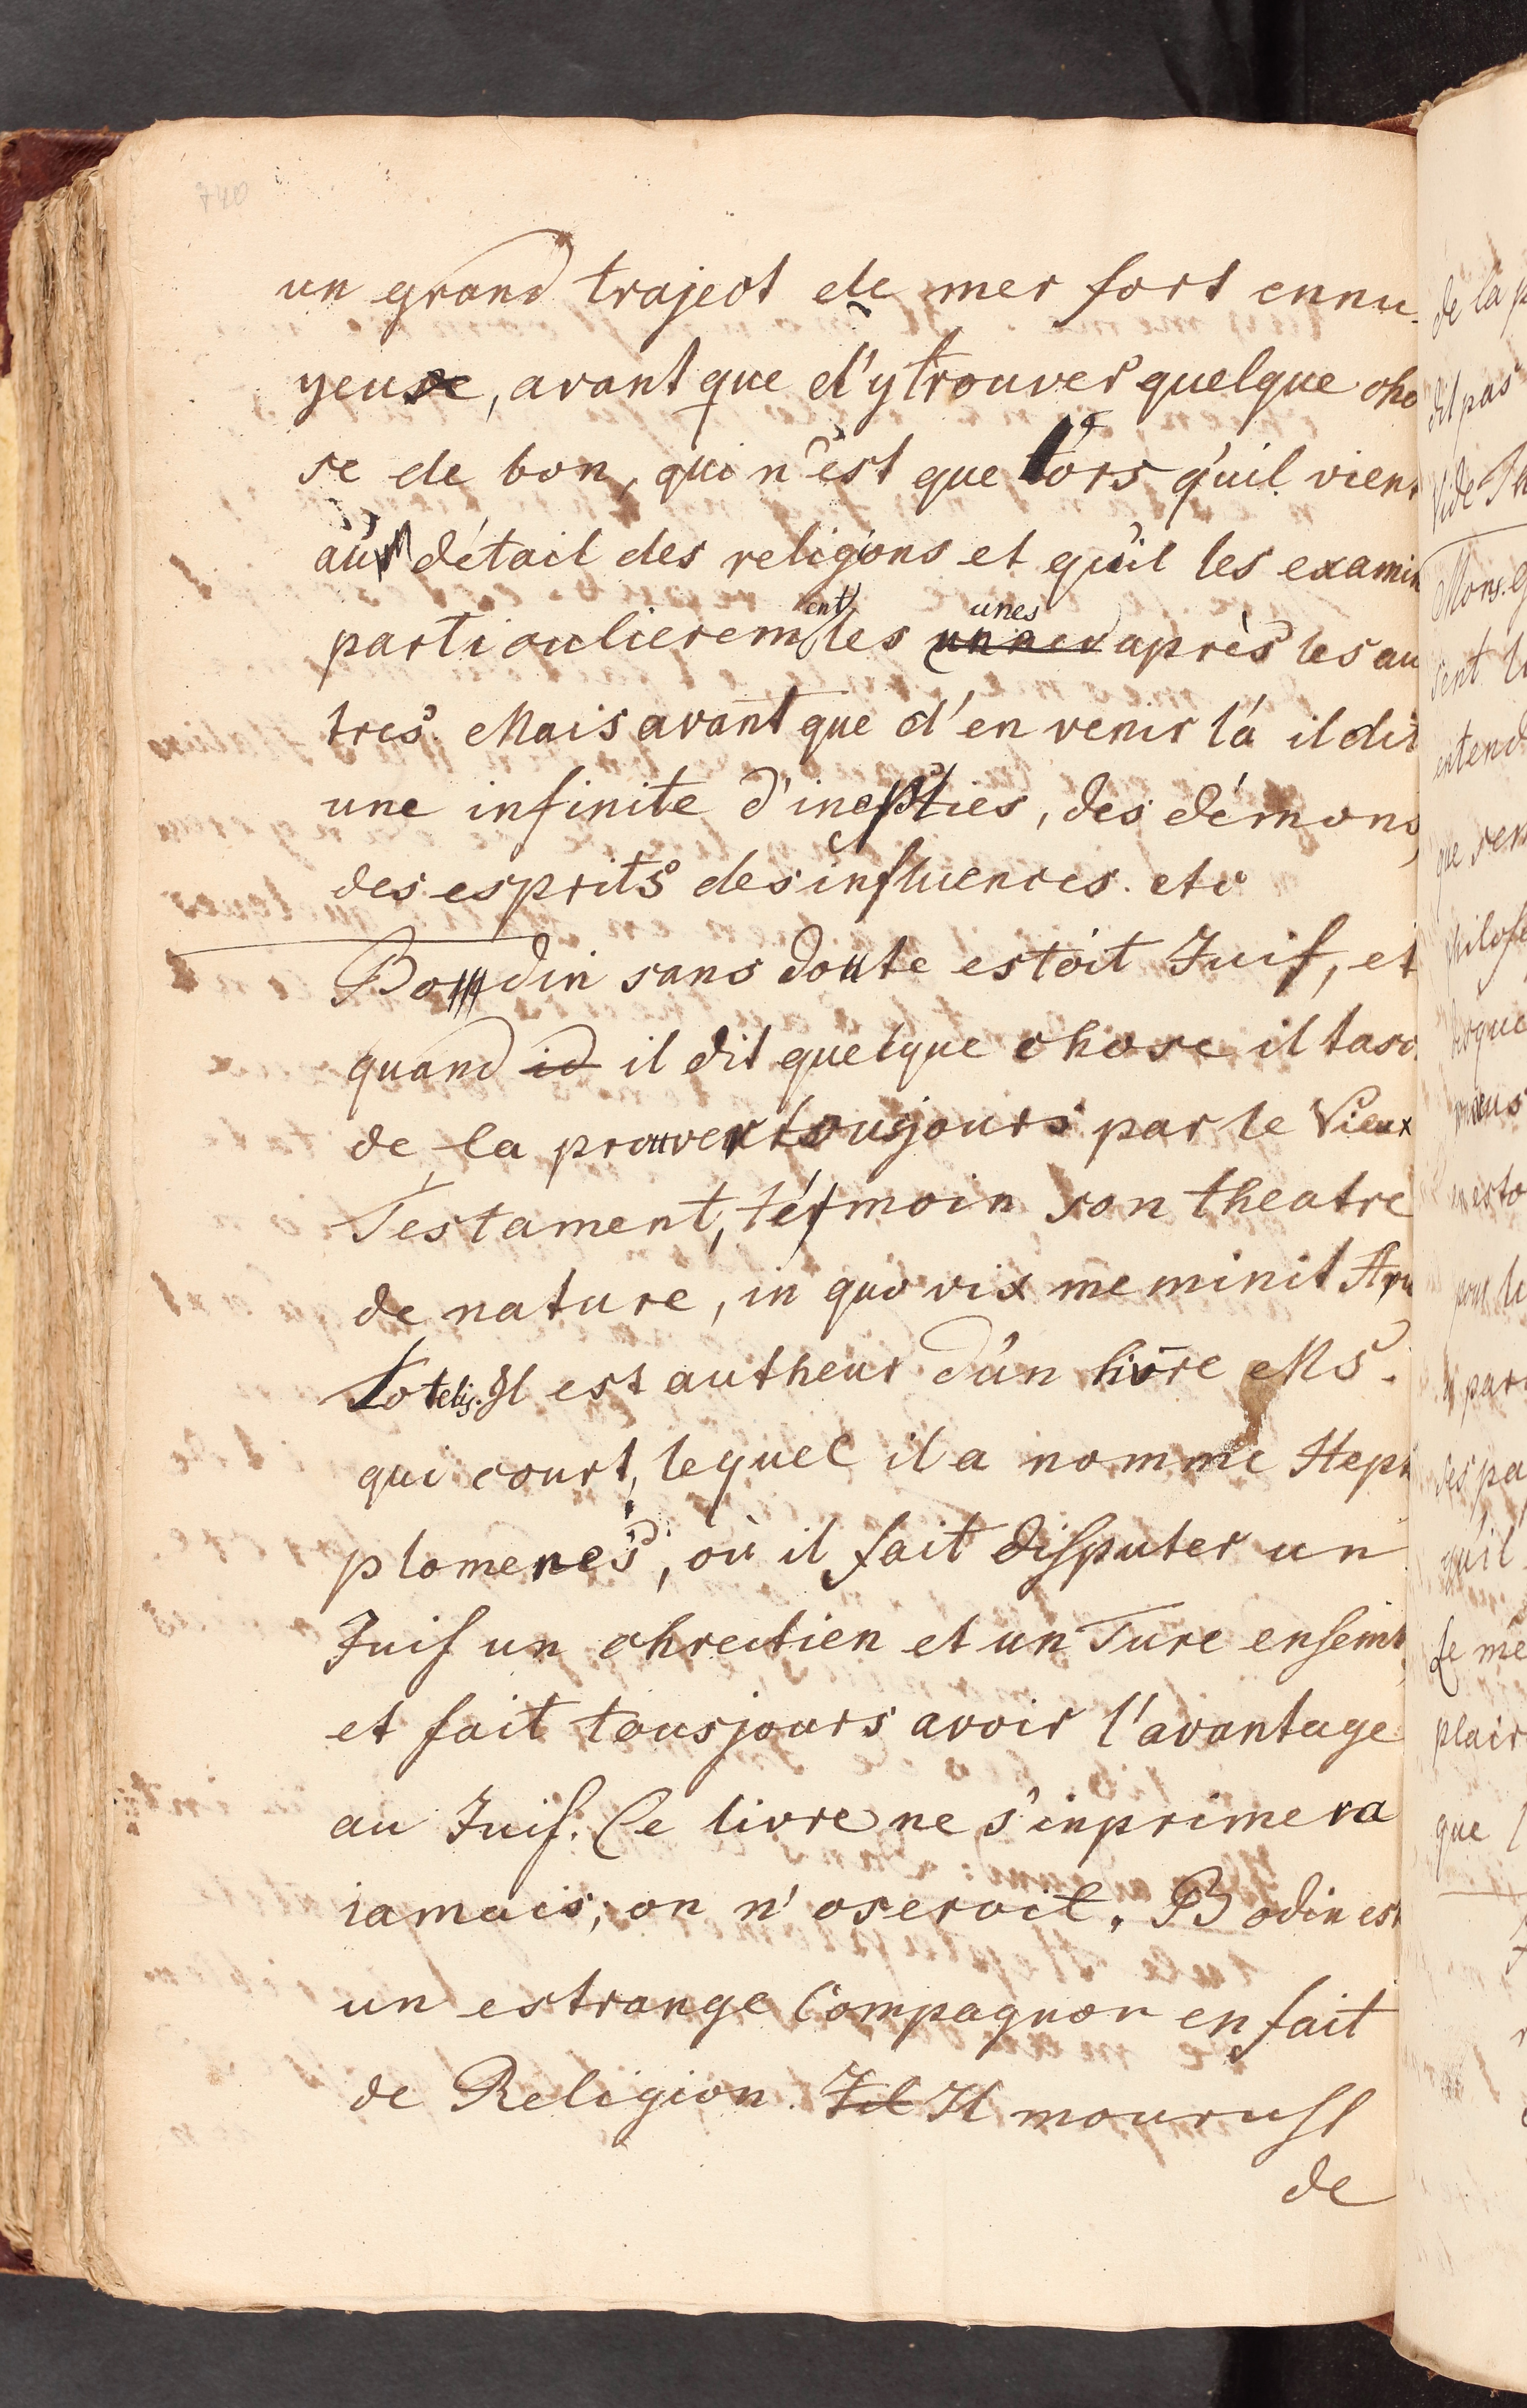 740
un grand traject de mer fort ennu-
yeuse, avant que d'y trouver quelque cho
se de bon, qui n'est que lors qu'il vient
au détail des religions et qu'il les examin
particulierement les unes après les au
tres. Mais avant que d'en venir là il dit
une infinite d'inepties, des démons,
des esprits des influences. etc
Bodin sans doute estoit Juif, et
quand id il dit quelque chose il tasc
de la prouver tousjours par le Vieux
Testament, témoin son theatre
de nature, in quo vix meminit Aris
totelis. Il est autheur d'un livre Ms.
qui court, lequel il a nomme Hept
plomeres, où il fait disputer un
Juif un chrectien et un Turc ensemb
et fait tousjours avoir l'avantage
au Juif. Ce livre ne s'inprimera
iamais, on n'oseroit. Bodin est
un estrange Compagnon en fait
de Religion. Jil Il mourust
de
de la p
dit pas
Vide
Mons. G
sent
entend
que
philoso
que
pour
par
pa
qu'il
le me
plair
que